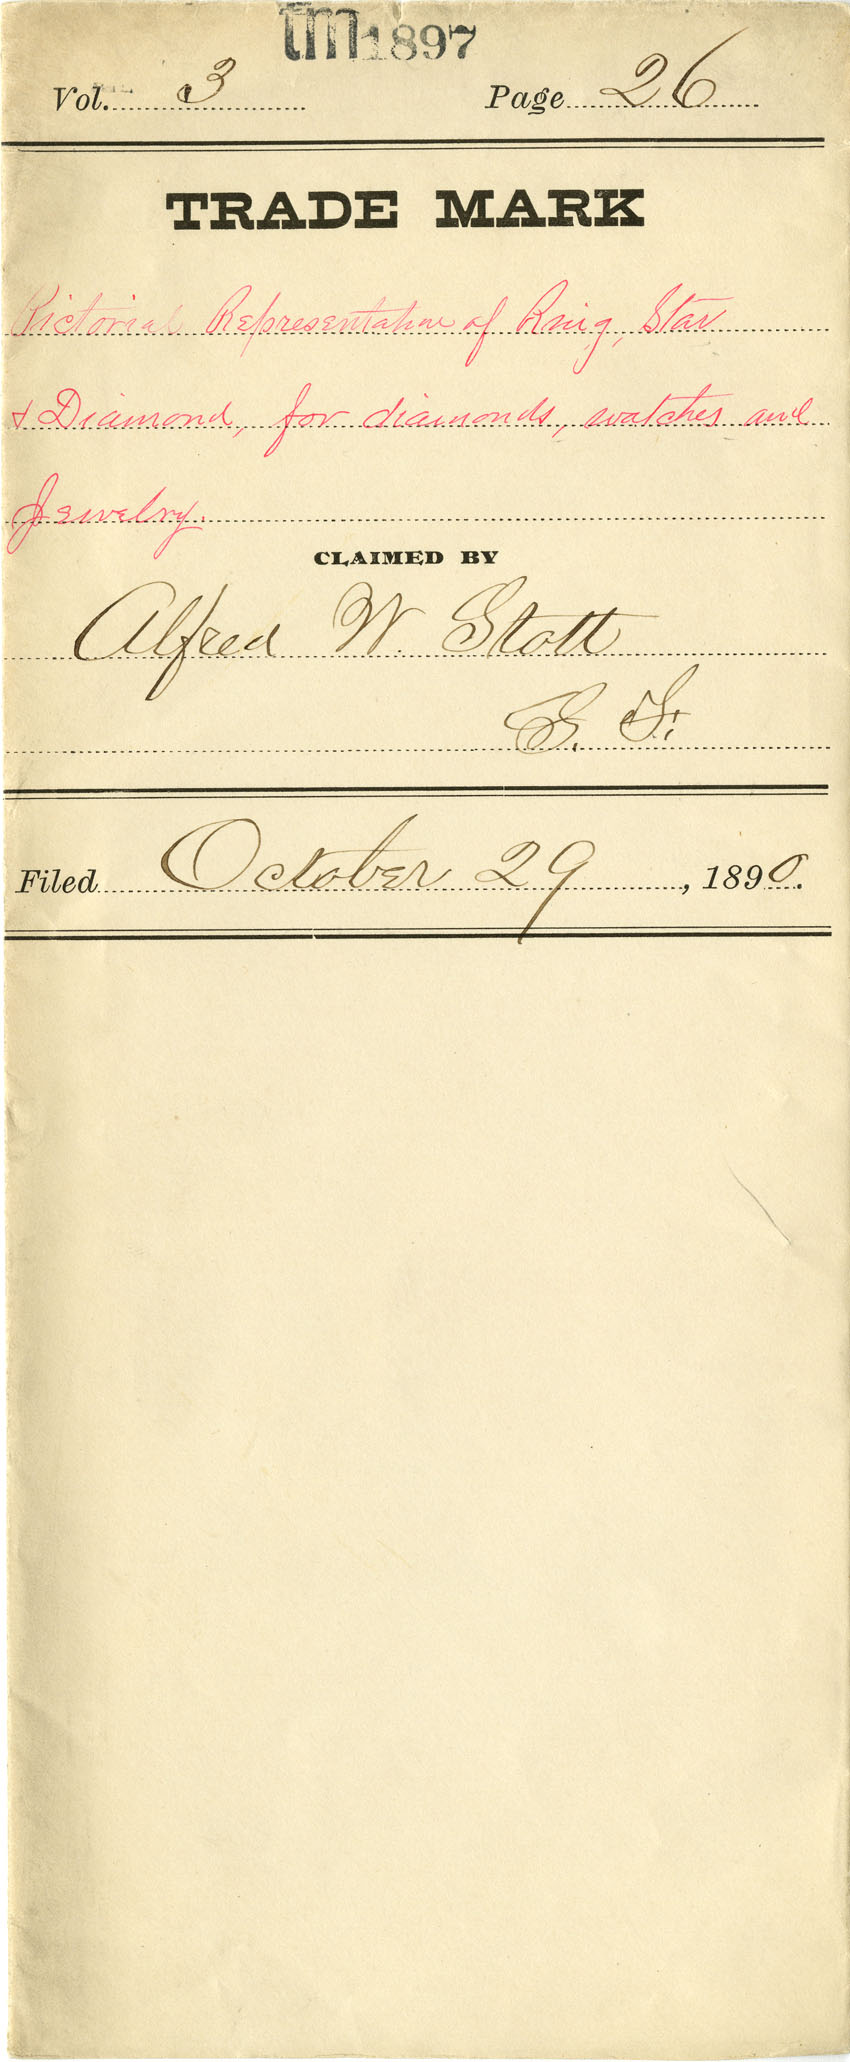 tm1897
Vol. 3 Page 26
TRADE MARK
Pictorial Representation of Ring, Star
& Diamond, for diamonds, watches and
Jewelry.
CLAIMED BY
Alfred W. Stott
S. F.
Filed October 29, 1890.